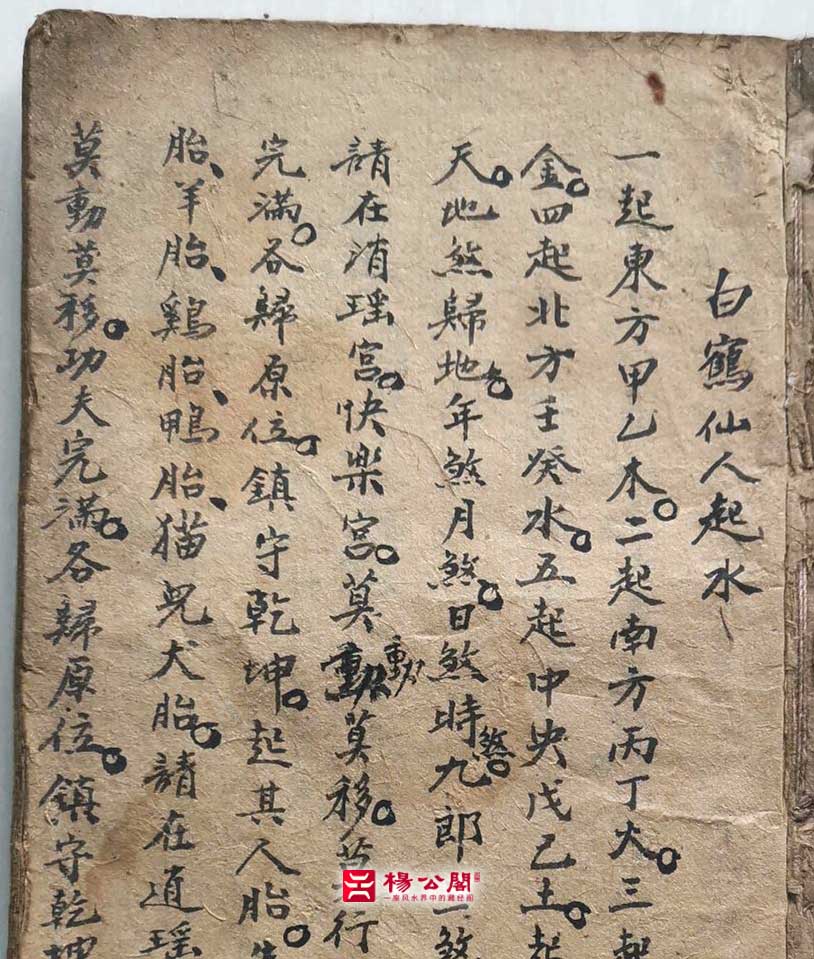 白鶴仙人起水
一起東方甲乙木。二起南方丙丁火。三起
金。四起北方壬癸水。五起中央戊己土。起
天。地煞歸地。年煞月煞。日煞時煞。九郎一煞
請在消瑶宫。快楽宫。莫動莫移。莫行
完滿。各歸原位。鎮守乾坤。起其人胎。
胎、羊胎、鷄胎、鴨胎、猫児犬胎。請在逍瑶
莫動莫移。功夫完滿。各歸原位。鎮守乾坤
楊公閣
一座风水界中的藏经阁